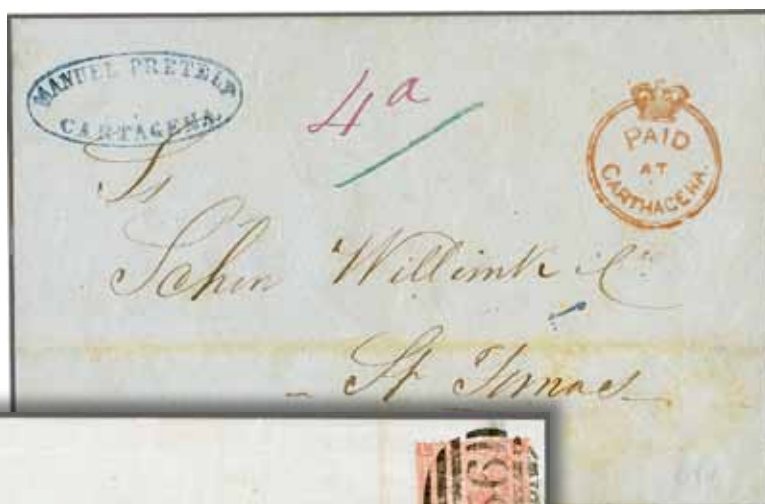 MANUEL PRETELT
CARTAGENA.
4a
PAID
AT
CARTHAGENA.
Srs
Schön Willink & Co
St Tomas